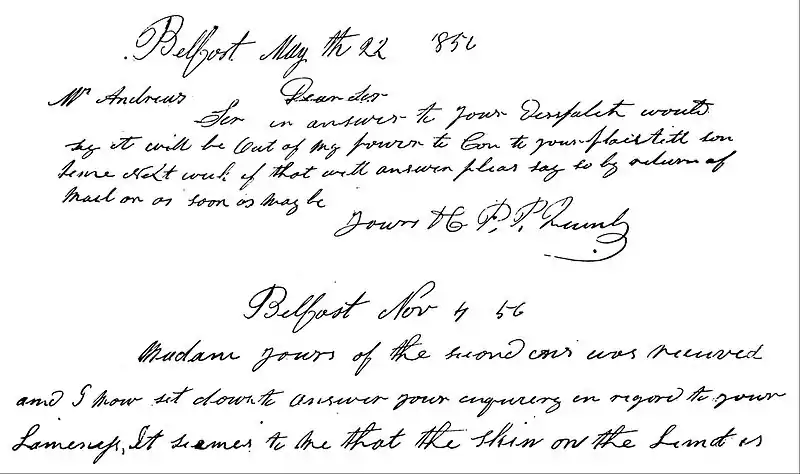 Belfast May th 22 1856
Mr Andrews Dear Sir
Sir in answer to your Despatch would
say it will be out of my power to Con to your plais till son
time Next week if that will answer pleas say so by return of
Mail or as soon as may be
Yours &C P. P. Quimby
Belfast Nov 4 56
Madam yours of the second was received
and I now set down to answer your enquirey in regard to your
Lameness, It seemes to me that the skin on the is